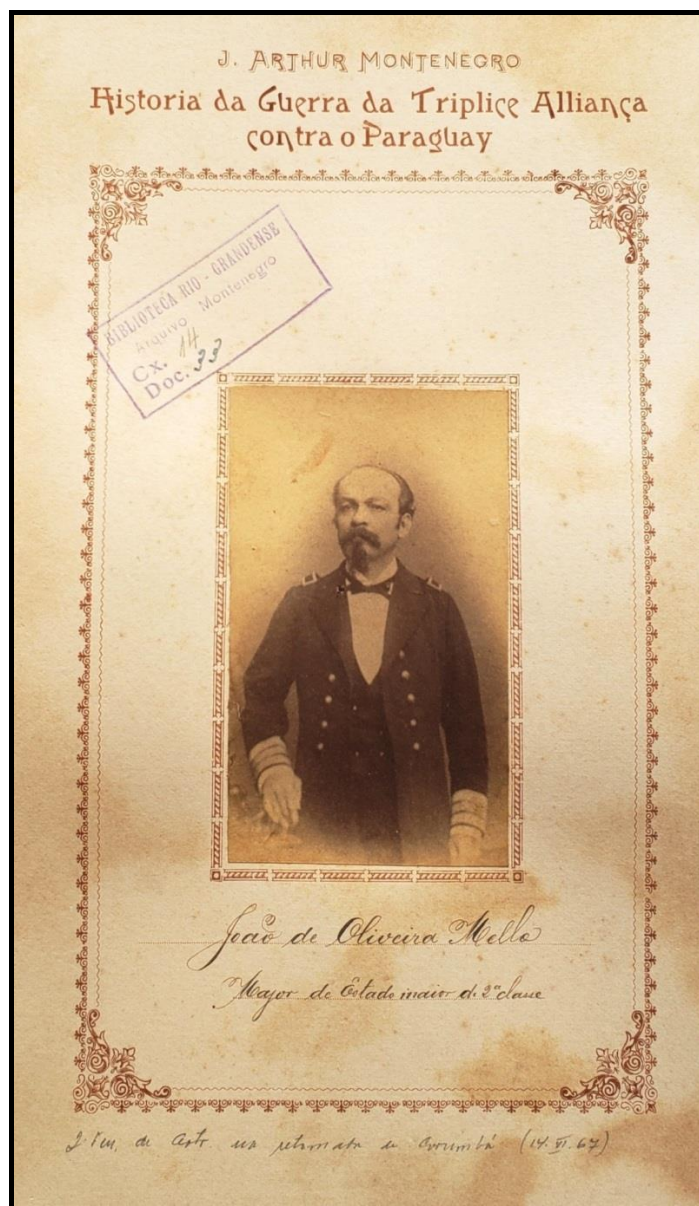 J. ARTHUR MONTENEGRO
Historia da Guerra da Triplice Alliança
contra o Paraguay
BIBLIOTECA RIO-GRANDENSE
Arquivo Montenegro
Cx. 14
Doc. 33
João de Oliveira Mello
Major do Estado maior d. 2ª classe
2º Ten. de Art. na retomada de Corumbá (14.VI.67)